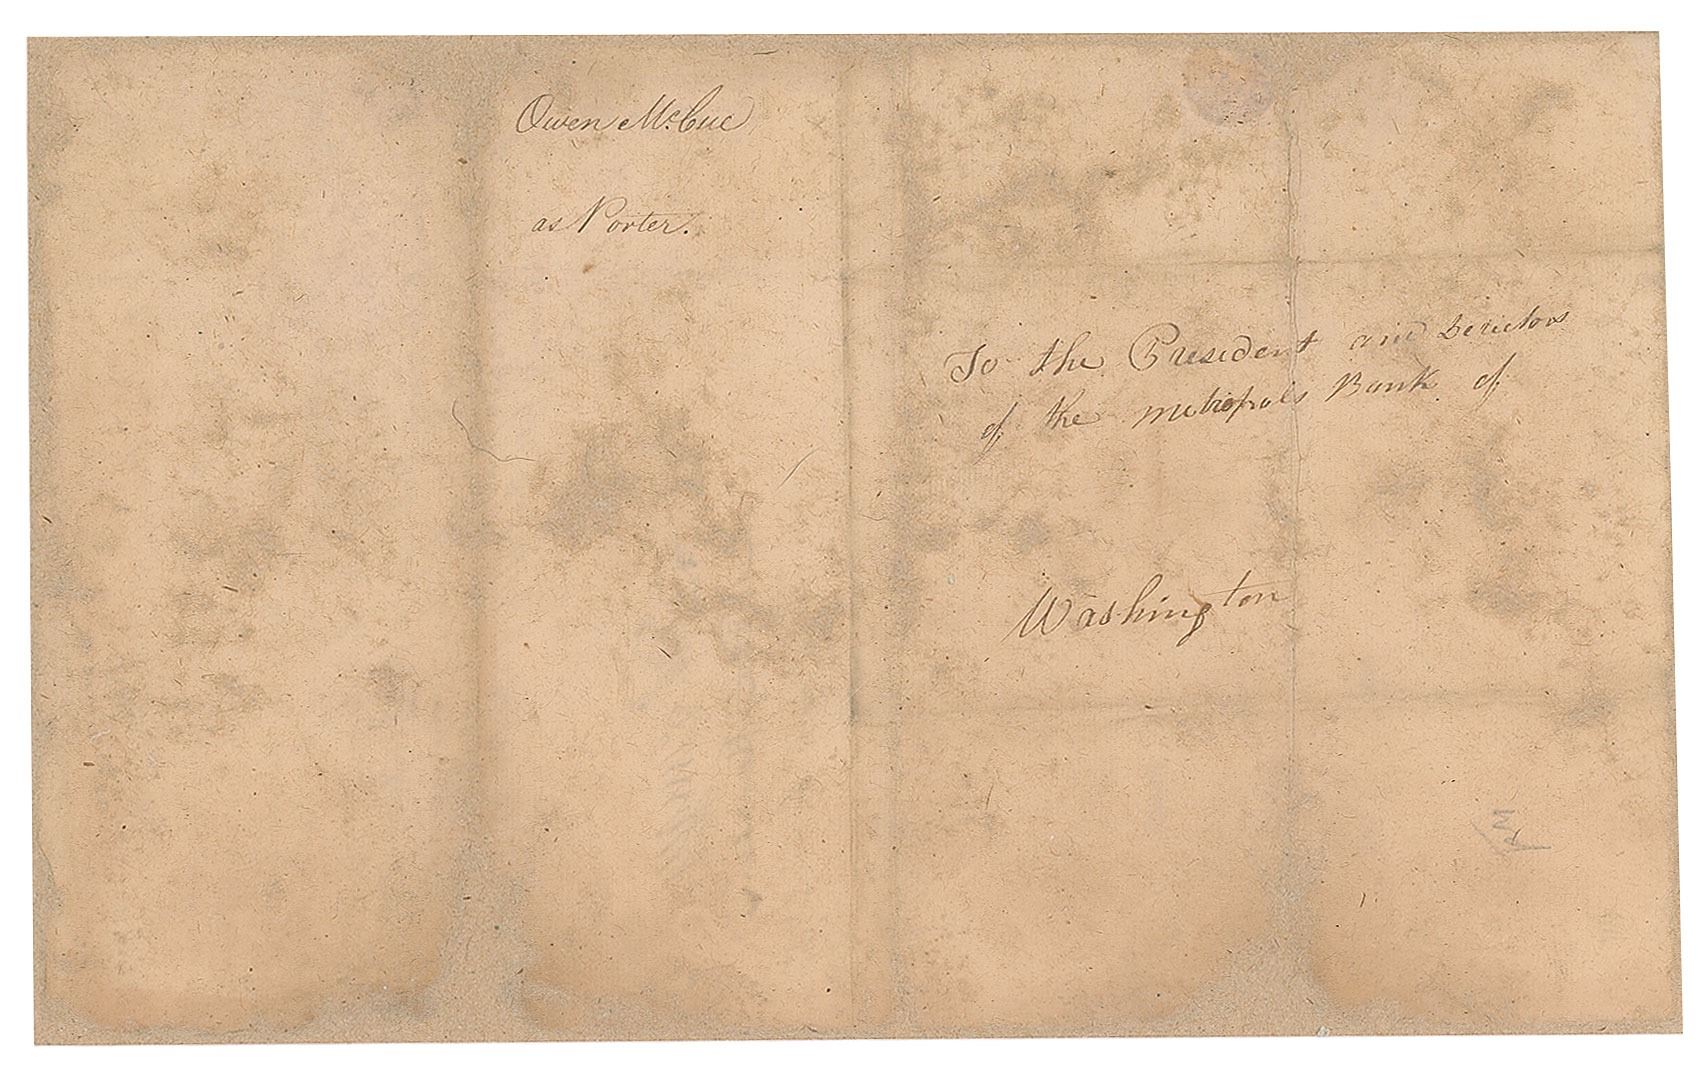 Owen McCue
as Porter.
To the President and Derictors
of the metropols Bank of
Washington